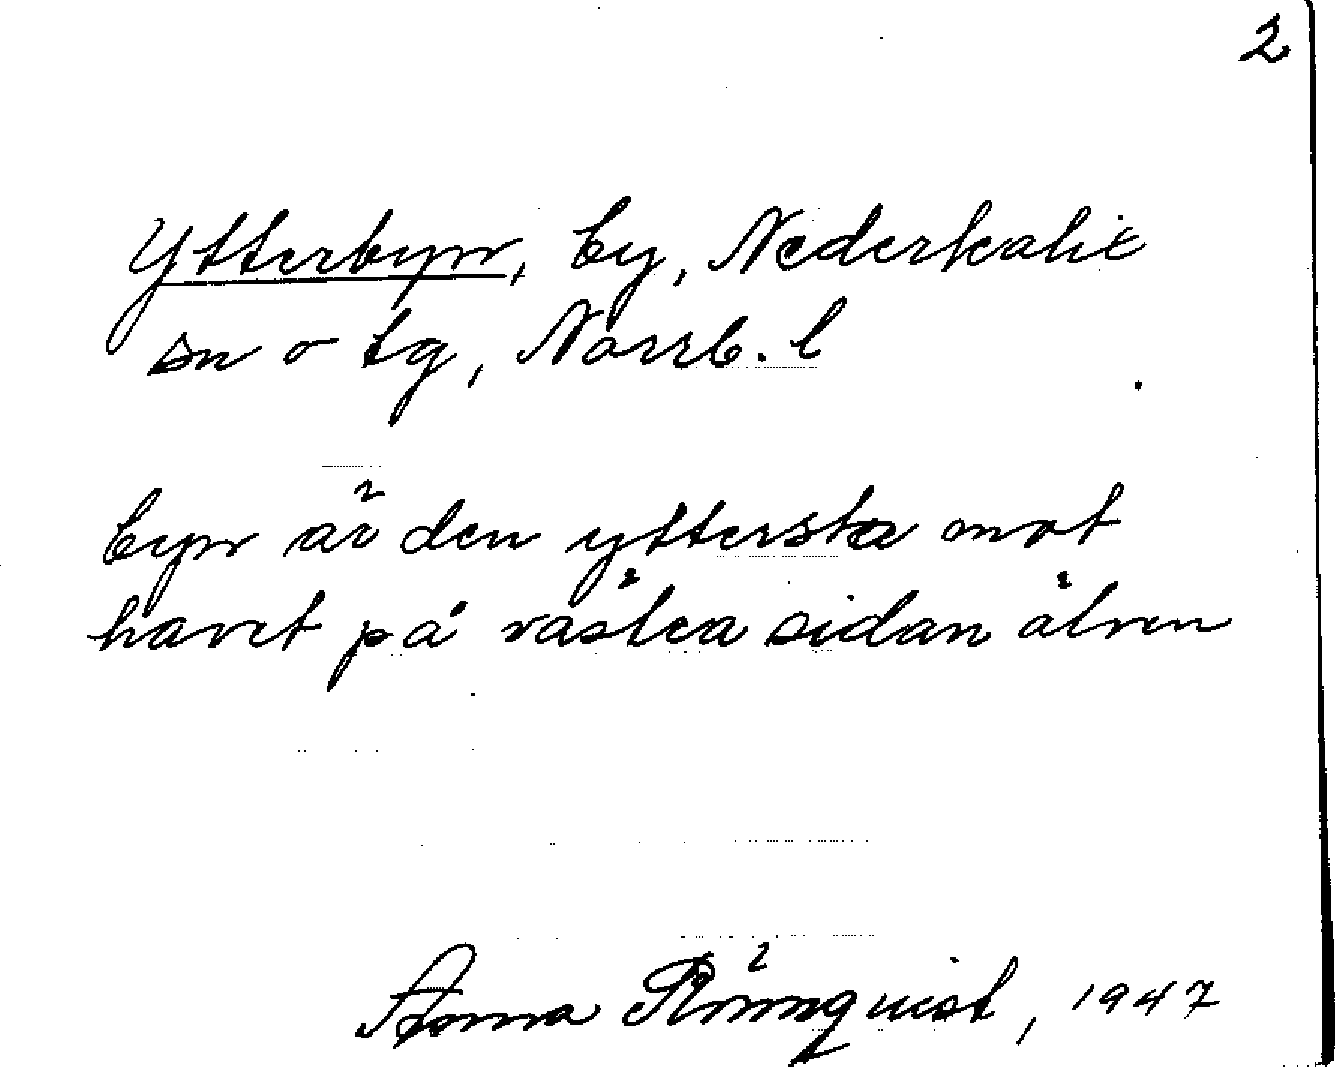 2
Ytterbyn, by, Nederkalix
sn o tg, Norrb. l
byn är den yttersta mot
havet på västra sidan älven
Anna Rönnquist, 1947